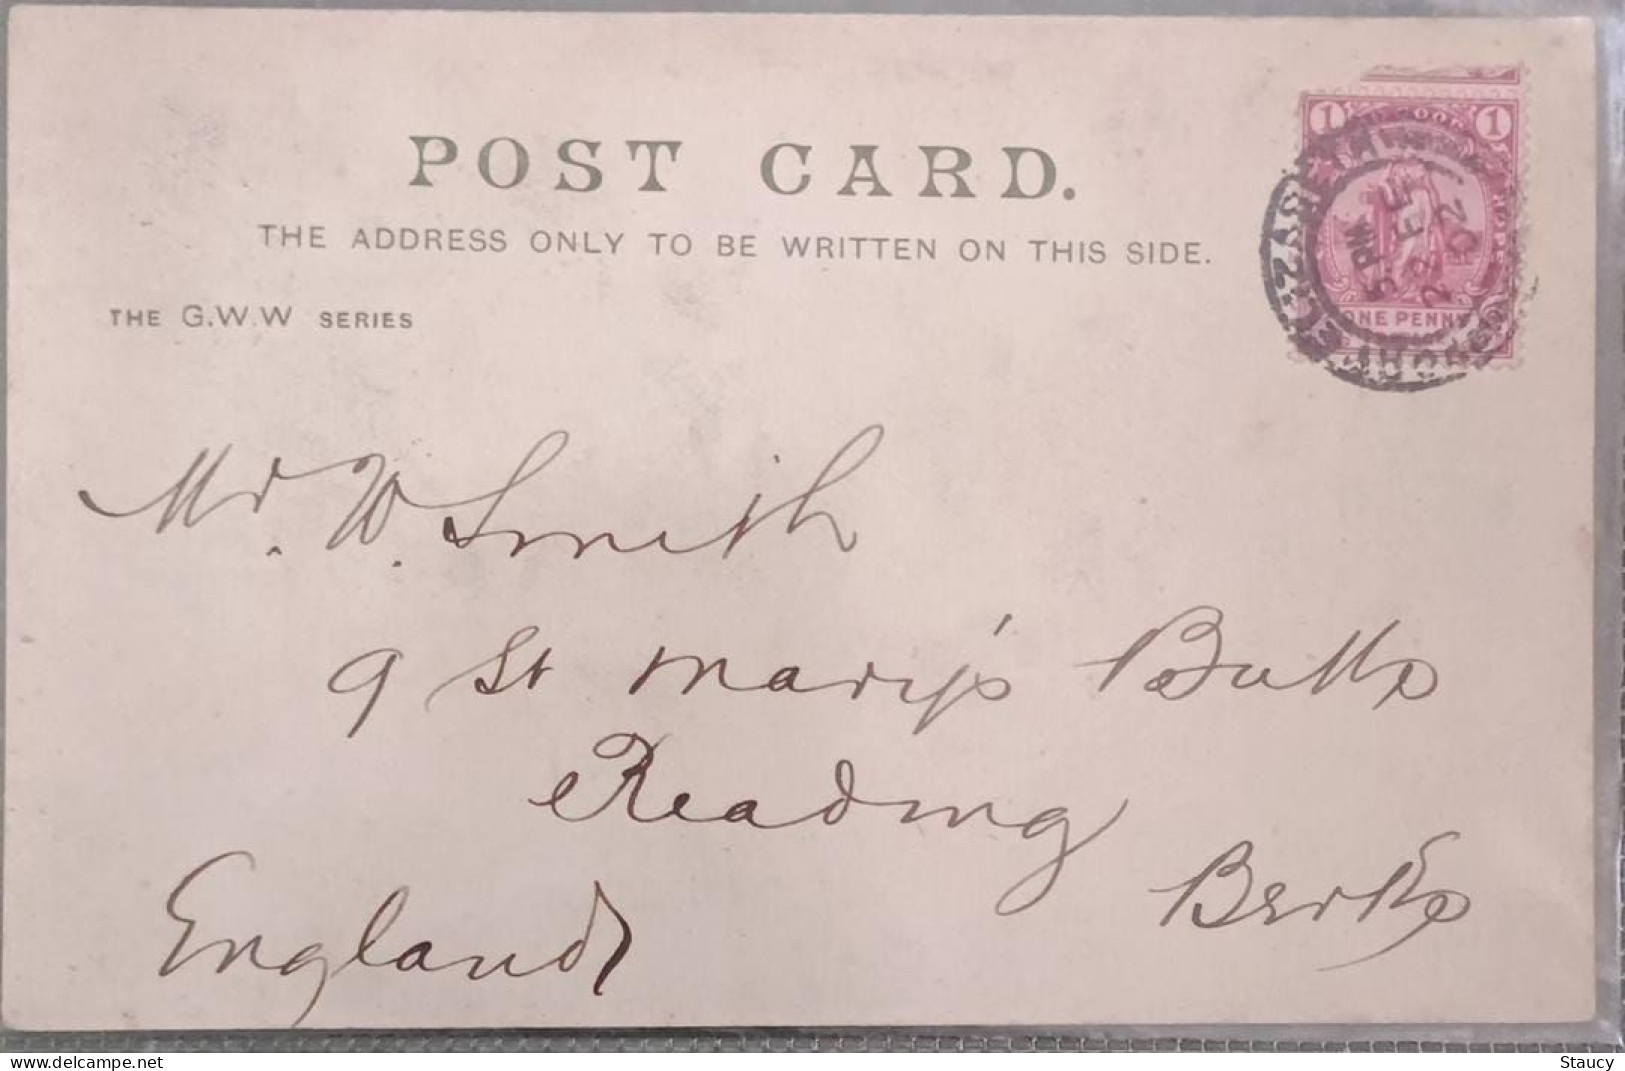 POST CARD.
THE ADDRESS ONLY TO BE WRITTEN ON THIS SIDE.
THE G.W.W SERIES
1 1
ONE PENNY
5 PM
FE
02
Mr. W. Smith
9 St Mary's Butts
Reading
Berks
England
Staucy